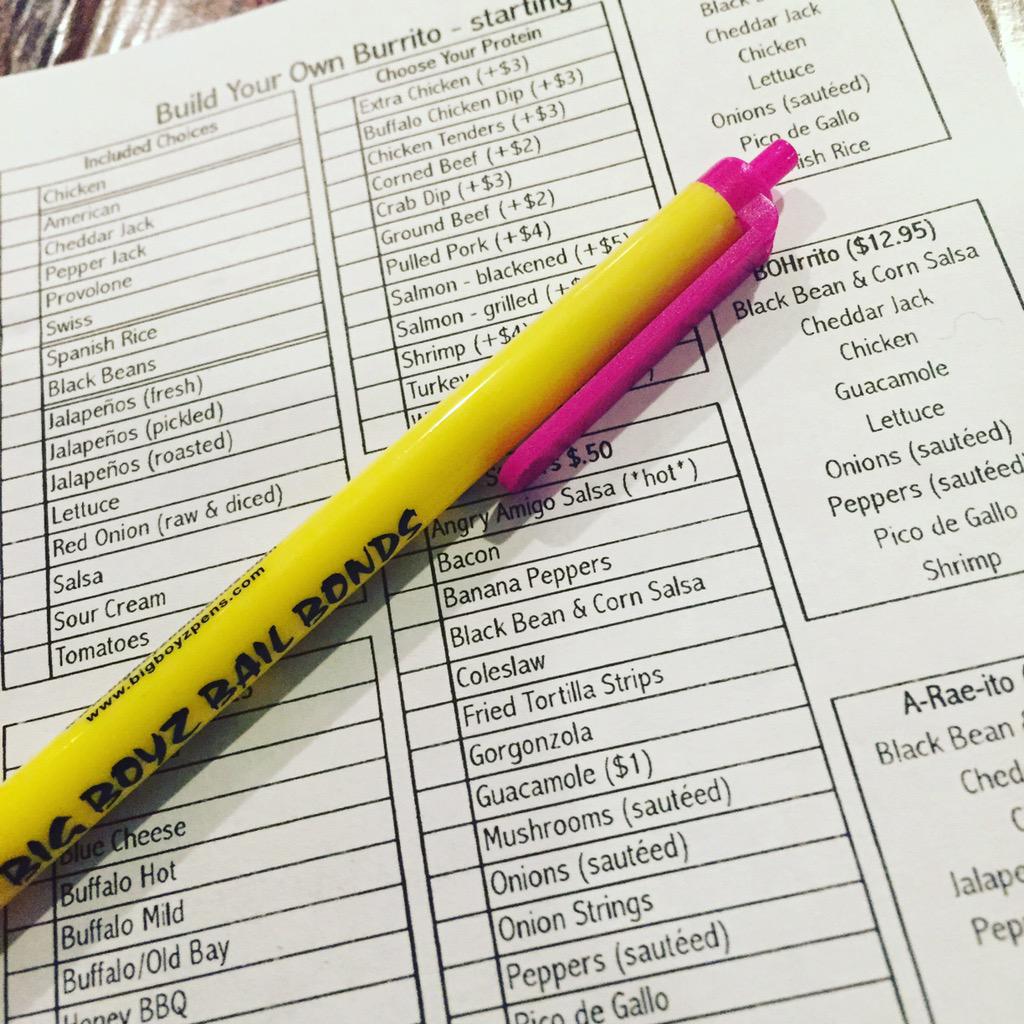 Build Your Own Burrito - starting
Included Choices
Chicken
American
Cheddar Jack
Pepper Jack
Provolone
Swiss
Spanish Rice
Black Beans
Jalapeños (fresh)
Jalapeños (pickled)
Jalapeños (roasted)
Lettuce
Red Onion (raw & diced)
Salsa
Sour Cream
Tomatoes
Blue Cheese
Buffalo Hot
Buffalo Mild
Buffalo/Old Bay
Honey BBQ
Choose Your Protein
Extra Chicken (+$3)
Buffalo Chicken Dip (+$3)
Chicken Tenders (+$3)
Corned Beef (+$2)
Crab Dip (+$3)
Ground Beef (+$2)
Pulled Pork (+$4)
Salmon - blackened (+$5)
Salmon - grilled (+$
Shrimp (+$4)
Turkey
$.50
Angry Amigo Salsa (*hot*)
Bacon
Banana Peppers
Black Bean & Corn Salsa
Coleslaw
Fried Tortilla Strips
Gorgonzola
Guacamole ($1)
Mushrooms (sautéed)
Onions (sautéed)
Onion Strings
Peppers (sautéed)
Pico de Gallo
Black
Cheddar Jack
Chicken
Lettuce
Onions (sautéed)
Pico de Gallo
ish Rice
BOHrrito ($12.95)
Black Bean & Corn Salsa
Cheddar Jack
Chicken
Guacamole
Lettuce
Onions (sautéed)
Peppers (sautéed)
Pico de Gallo
Shrimp
A-Rae-ito (
Black Bean
Ched
Jalape
Pep
www.bigboyzpens.com
BIG BOYZ BAIL BONDS